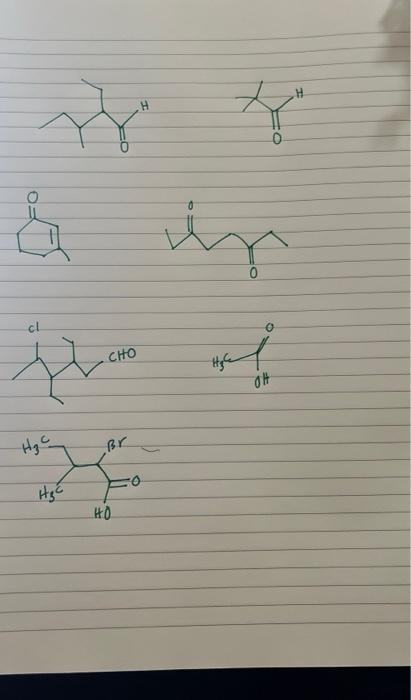 H
O
H
O
O
O
O
Cl
CHO
H3C
O
OH
H3C
Br
H3C
O
HO